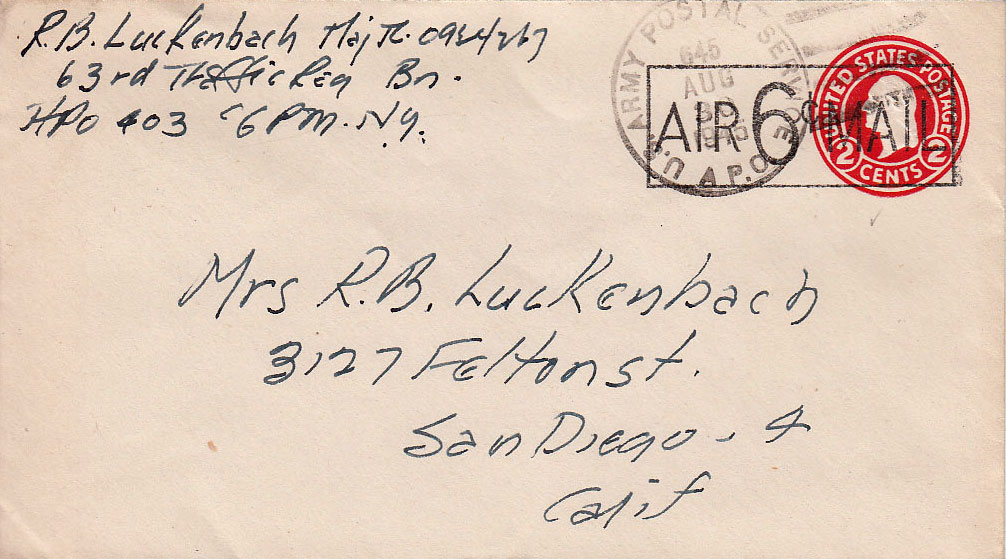 R.B. Luckenbach Maj TC 0924267
63rd Traffic Reg Bn.
APO 403 % PM. NY.
U.S. ARMY POSTAL SERVICE A.P.O.
645
AUG
30
1945
AIR 6¢ MAIL
UNITED STATES POSTAGE
2 CENTS 2
Mrs R.B. Luckenbach
3127 Felton st.
San Diego - 4
Calif